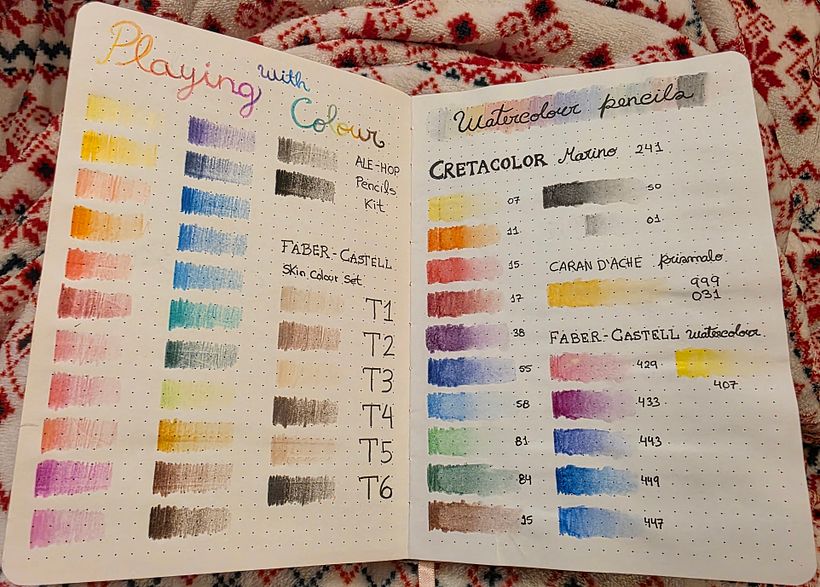 Playing with
Colour
ALE-HOP
Pencils
Kit
FABER-CASTELL
Skin Colour Set
T1
T2
T3
T4
T5
T6
Watercolour pencils
CRETACOLOR Marino 241
07
11
15
17
38
55
58
81
84
15
50
01
CARAN D'ACHE prismalo
999
031
FABER-CASTELL watercolour
429
407
433
443
449
447